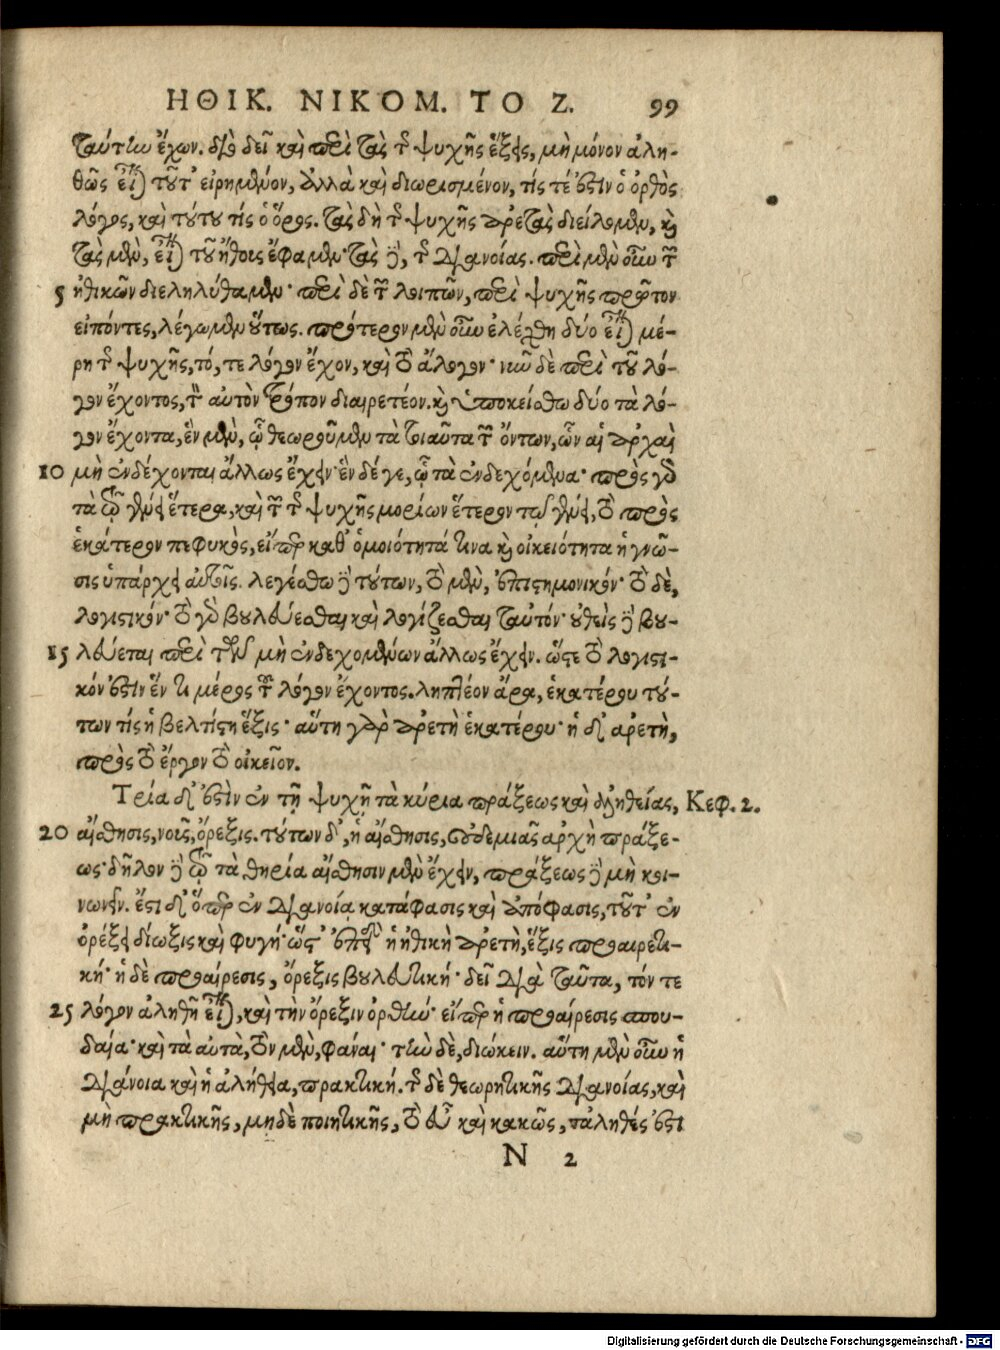 ΗΘΙΚ. ΝΙΚΟΜ. ΤΟ Ζ. 99
ταύτην ἔχων. διὸ δεῖ καὶ περὶ τὰς τῆς ψυχῆς ἕξεις, μὴ μόνον ἀλη-
θῶς εἶναι τοῦτ' εἰρημένον, ἀλλὰ καὶ διωρισμένον, τίς τέ ἐστιν ὁ ὀρθὸς
λόγος, καὶ τούτου τίς ὁ ὅρος. τὰς δὴ τῆς ψυχῆς ἀρετὰς διείλομεν, καὶ
τὰς μὲν, εἶναι τοῦ ἤθοις ἔφαμεν· τὰς δὲ, τῆς διανοίας. περὶ μὲν οὖν τῶν
5 ἠθικῶν διεληλύθαμεν· περὶ δὲ τῶν λοιπῶν, περὶ ψυχῆς πρῶτον
εἰπόντες, λέγωμεν οὕτως. πρότερον μὲν οὖν ἐλέχθη δύο εἶναι μέ-
ρη τῆς ψυχῆς, τό, τε λόγον ἔχον, καὶ τὸ ἄλογον· νῦν δὲ περὶ τοῦ λό-
γον ἔχοντος, τὸν αὐτὸν τρόπον διαιρετέον. καὶ ὑποκείσθω δύο τὰ λό-
γον ἔχοντα, ἓν μὲν, ᾧ θεωροῦμεν τὰ τοιαῦτα τῶν ὄντων, ὧν αἱ ἀρχαὶ
10 μὴ ἐνδέχονται ἄλλως ἔχειν· ἓν δέ γε, ᾧ τὰ ἐνδεχόμενα· πρὸς γὰρ
τὰ τῷ γένει ἕτερα, καὶ τῶν τῆς ψυχῆς μορίων ἕτερον τῷ γένει, τὸ πρὸς
ἑκάτερον πεφυκὸς, εἴπερ καθ' ὁμοιότητά τινα καὶ οἰκειότητα ἡ γνῶ-
σις ὑπάρχει αὐτοῖς. λεγέσθω δὲ τούτων, τὸ μὲν, ἐπιστημονικόν· τὸ δὲ,
λογιστικόν· τὸ γὰρ βουλεύεσθαι καὶ λογίζεσθαι ταὐτόν· οὐθεὶς δὲ βου-
15 λεύεται περὶ τῶν μὴ ἐνδεχομένων ἄλλως ἔχειν. ὥστε τὸ λογιστι-
κόν ἐστιν ἕν τι μέρος τοῦ λόγον ἔχοντος. ληπτέον ἄρα, ἑκατέρου τού-
των τίς ἡ βελτίστη ἕξις· αὕτη γὰρ ἀρετὴ ἑκατέρου· ἡ δ' ἀρετὴ,
πρὸς τὸ ἔργον τὸ οἰκεῖον.
Τρία δ' ἐστὶν ἐν τῇ ψυχῇ τὰ κύρια πράξεως καὶ ἀληθείας, Κεφ. 2.
20 αἴσθησις, νοῦς, ὄρεξις. τούτων δ', ἡ αἴσθησις, οὐδεμιᾶς ἀρχὴ πράξε-
ως· δῆλον δὲ τῷ τὰ θηρία αἴσθησιν μὲν ἔχειν, πράξεως δὲ μὴ κοι-
νωνεῖν. ἔστι δ' ὅπερ ἐν διανοίᾳ κατάφασις καὶ ἀπόφασις, τοῦτ' ἐν
ὀρέξει δίωξις καὶ φυγή· ὥστ' ἐπεὶ ἡ ἠθικὴ ἀρετὴ, ἕξις προαιρετι-
κή· ἡ δὲ προαίρεσις, ὄρεξις βουλευτική· δεῖ διὰ ταῦτα, τόν τε
25 λόγον ἀληθῆ εἶναι, καὶ τὴν ὄρεξιν ὀρθήν· εἴπερ ἡ προαίρεσις σπου-
δαία· καὶ τὰ αὐτὰ, τὸν μὲν, φάναι· τὴν δὲ, διώκειν. αὕτη μὲν οὖν ἡ
διάνοια καὶ ἡ ἀλήθεια, πρακτική. τῆς δὲ θεωρητικῆς διανοίας, καὶ
μὴ πρακτικῆς, μηδὲ ποιητικῆς, τὸ εὖ καὶ κακῶς, τἀληθές ἐστι
N 2
Digitalisierung gefördert durch die Deutsche Forschungsgemeinschaft - DFG